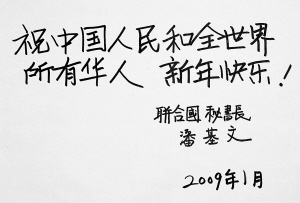 祝中国人民和全世界
所有华人 新年快乐!
聯合國秘書長
潘基文
2009年1月